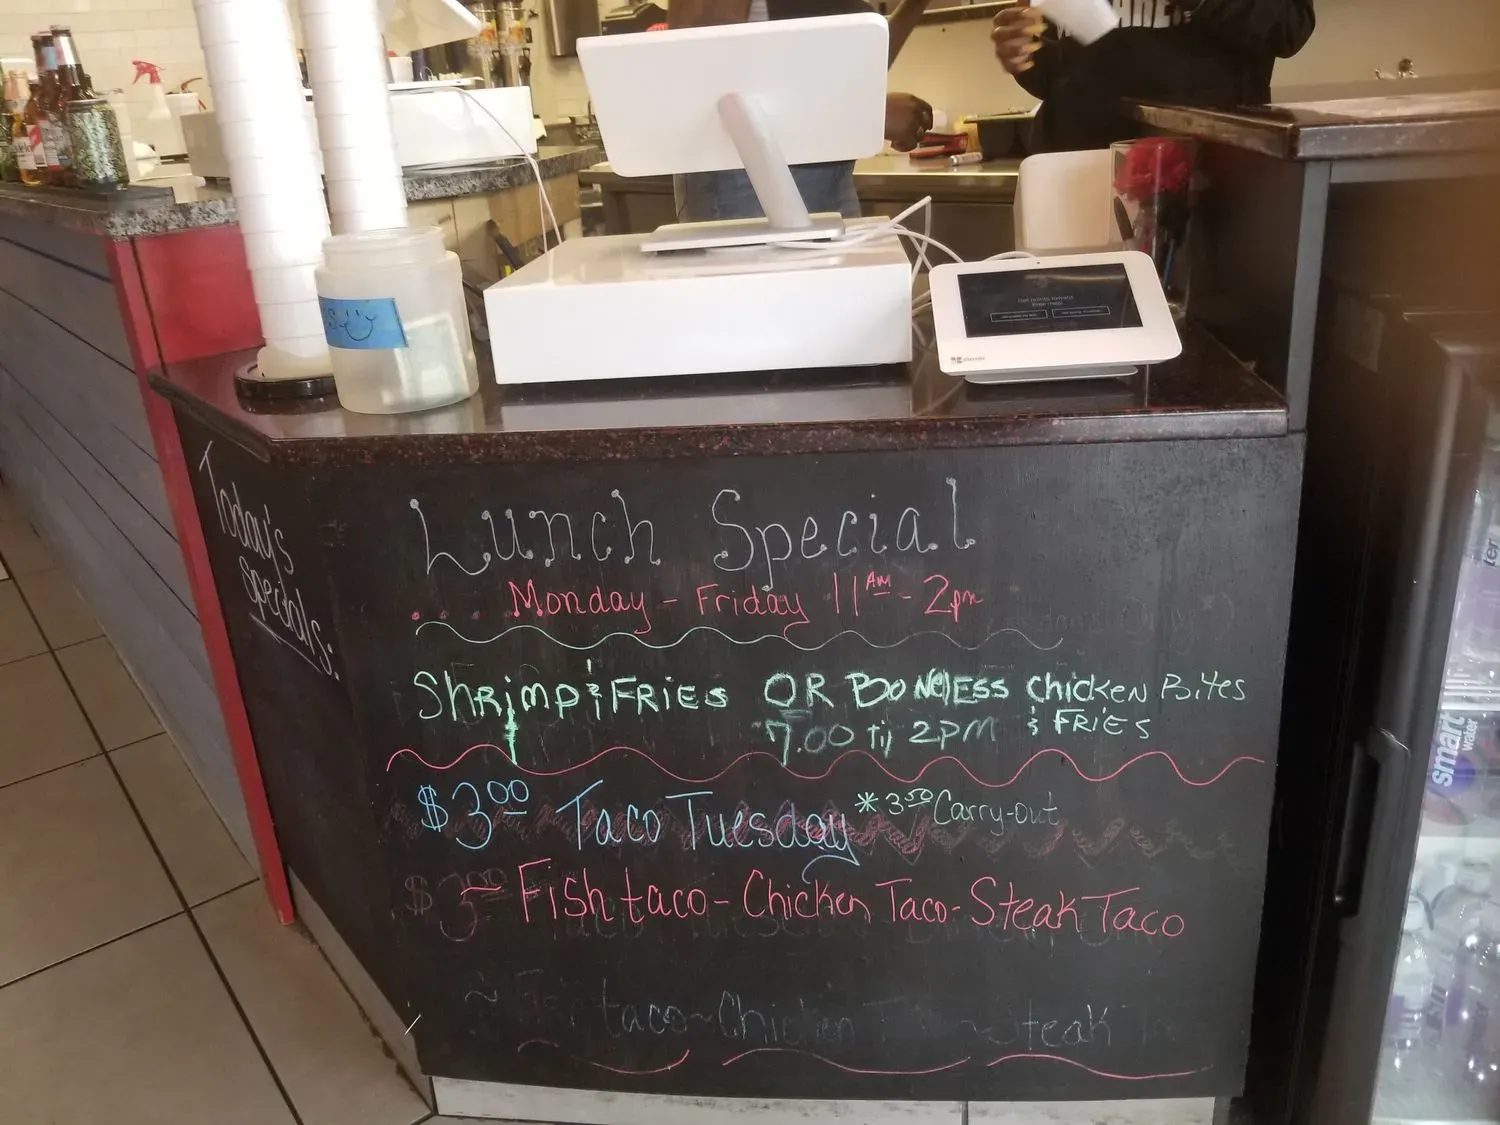 Today's
specials:
Lunch Special
Monday - Friday 11AM - 2pm
Shrimp & FRIES OR BONElESS ChicKEN Bites
7.00 til 2PM & FRIES
$3.00 Taco Tuesday *3.50 Carry-out
Fish taco - Chicken Taco - Steak Taco
taco ~ Chicken ~ Steak
smart
water
clover